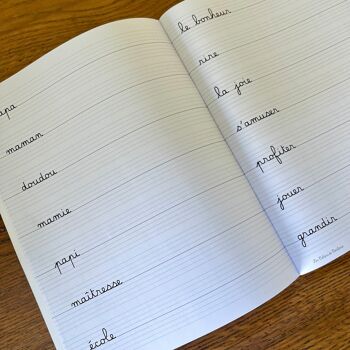 apa
maman
doudou
mamie
papi
maîtresse
école
le bonheur
rire
la joie
s'amuser
profiter
jouer
grandir